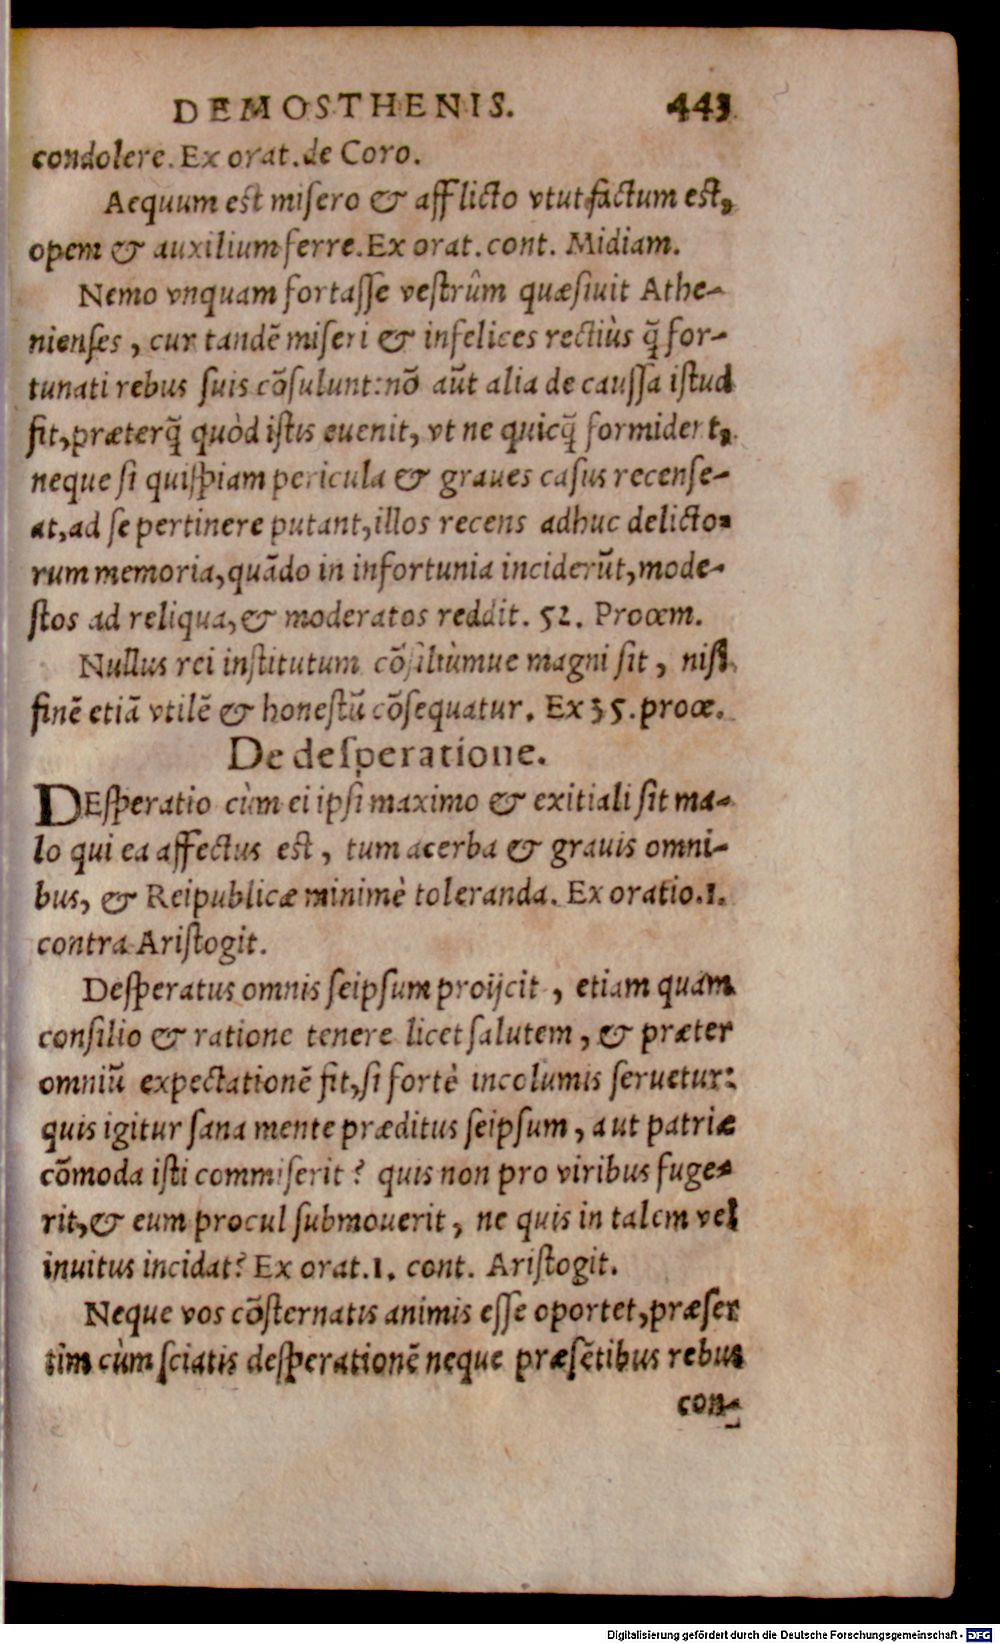 DEMOSTHENIS. 443
condolere. Ex orat. de Coro.
Aequum est misero & afflicto vtut factum est,
opem & auxilium ferre. Ex orat. cont. Midiam.
Nemo vnquam fortasse vestrûm quæsiuit Athe-
nienses, cur tandē miseri & infelices rectiùs q̃ for-
tunati rebus suis cōsulunt: nō aūt alia de caussa istud
fit, præterq̃ quòd istis euenit, vt ne quicq̃ formident,
neque si quispiam pericula & graues casus recense-
at, ad se pertinere putant, illos recens adhuc delicto-
rum memoria, quādo in infortunia inciderūt, mode-
stos ad reliqua, & moderatos reddit. 52. Proœm.
Nullus rei institutum cōsiliùmue magni sit, nisi
finē etiā vtilē & honestū cōsequatur. Ex 35. proœ.
De desperatione.
DEsperatio cùm ei ipsi maximo & exitiali sit ma-
lo qui ea affectus est, tum acerba & grauis omni-
bus, & Reipublicæ minimè toleranda. Ex oratio. 1.
contra Aristogit.
Desperatus omnis seipsum proijcit, etiam quam
consilio & ratione tenere licet salutem, & præter
omniū expectationē fit, si fortè incolumis seruetur:
quis igitur sana mente præditus seipsum, aut patriæ
cōmoda isti commiserit? quis non pro viribus fuge-
rit, & eum procul submouerit, ne quis in talem vel
inuitus incidat? Ex orat. 1. cont. Aristogit.
Neque vos cōsternatis animis esse oportet, præser
tim cùm sciatis desperationē neque præsētibus rebus
con-
Digitalisierung gefördert durch die Deutsche Forschungsgemeinschaft - DFG